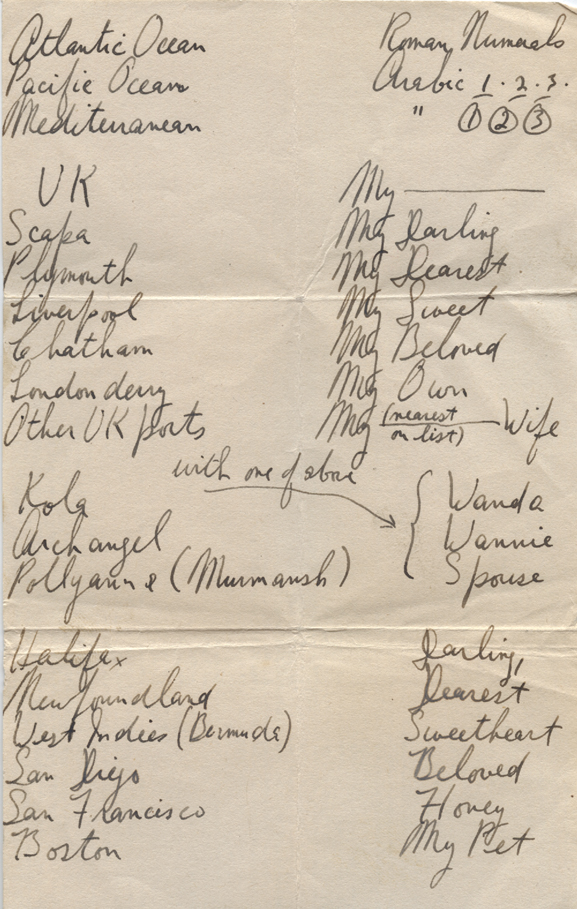 Atlantic Ocean Roman Numerals
Pacific Ocean Arabic 1. 2. 3.
Mediterranean " ① ② ③
UK My ———
Scapa My Darling
Plymouth My Dearest.
Liverpool My Sweet
Chatham My Beloved
Londonderry My Own
Other UK ports My (nearest on list) Wife
with one of above
Kola Wanda
Archangel Wannie
Pollyanne (Murmansh) Spouse
Halifax Darling,
Newfoundland Dearest
West Indies (Bermuda) Sweetheart
San Diego Beloved
San Francisco Honey
Boston My Pet